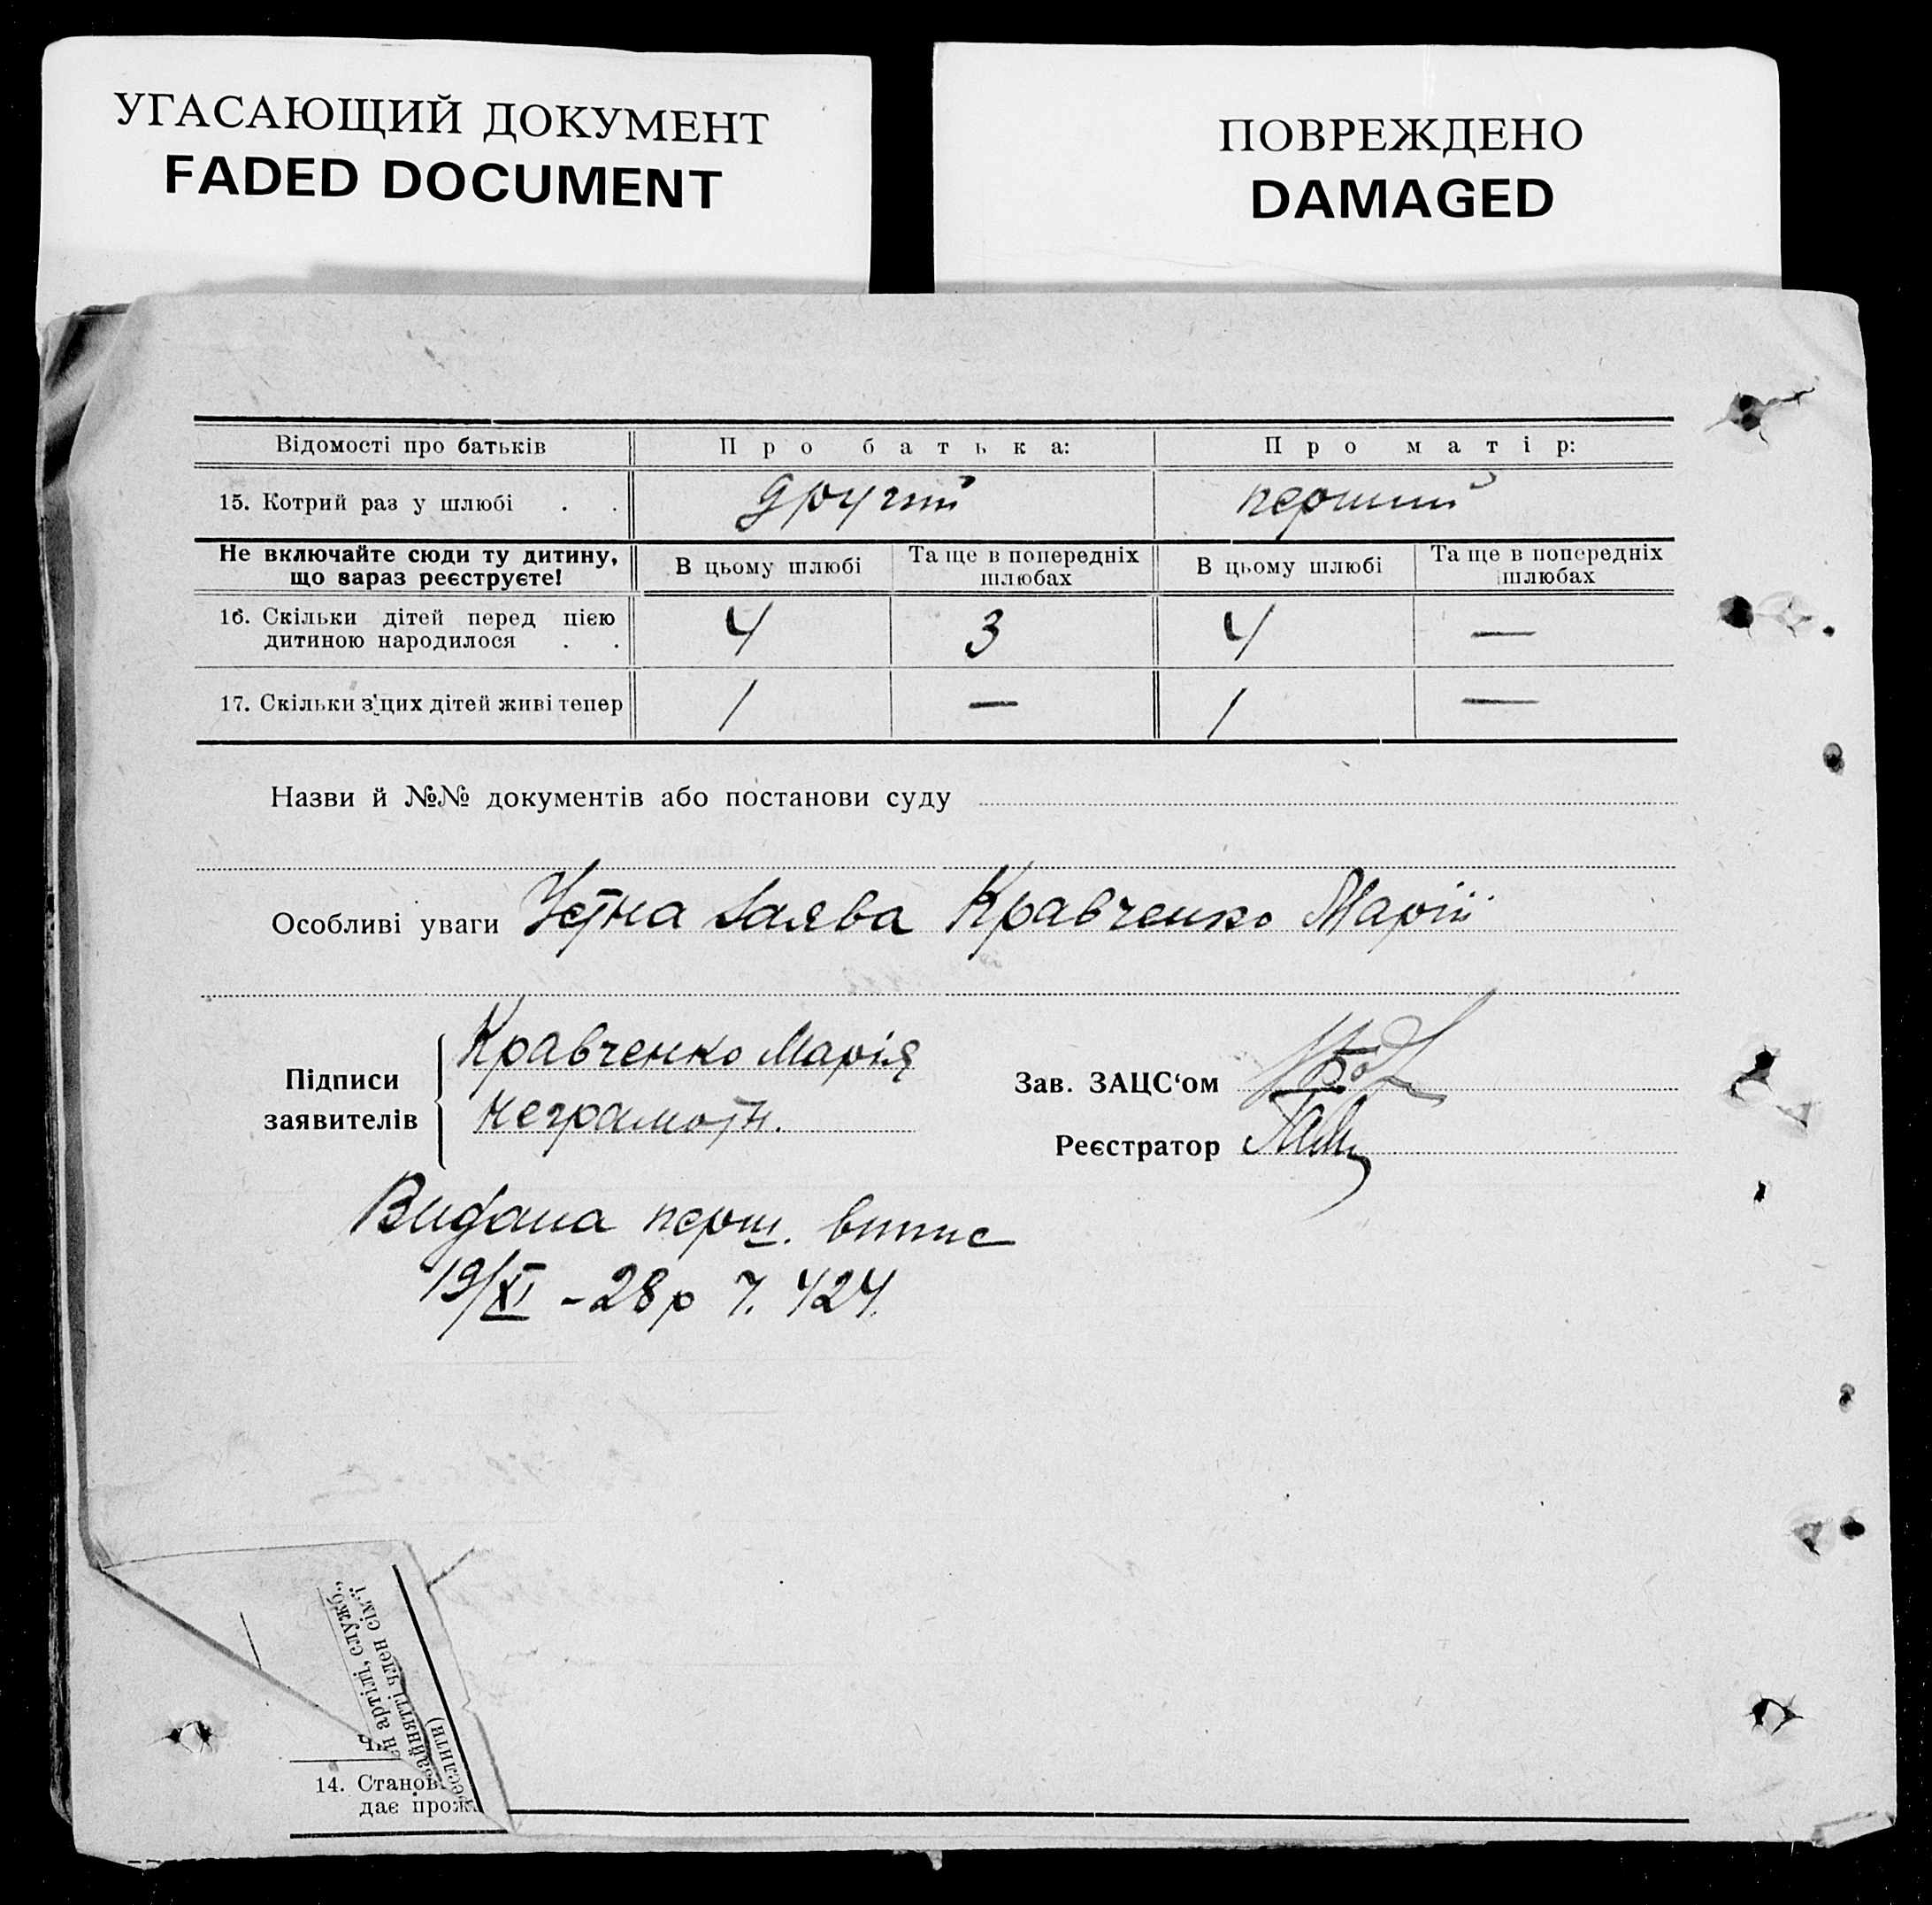 УГАСАЮЩИЙ ДОКУМЕНТ
FADED DOCUMENT
ПОВРЕЖДЕНО
DAMAGED
Відомості про батьків Про батька: Про матір:
15. Котрий раз у шлюбі . . другий перший
Не включайте сюди ту дитину, що зараз реєструєте! В цьому шлюбі Та ще в попередніх шлюбах В цьому шлюбі Та ще в попередніх шлюбах
16. Скільки дітей перед цією
дитиною народилося . . 4 3 4 —
17. Скільки з'цих дітей живі тепер 1 — 1 —
Назви й №№ документів або постанови суду
Особливі уваги Устна заява Кравченко Марії
Підписи заявителів Кравченко Марія
неграмотн.
Зав. ЗАЦС‘ом
Реєстратор
Видана перш. витис
19/XI -28р Ч. 424.
артілі, служб.,
член сім'ї
14. Станов
дає прож